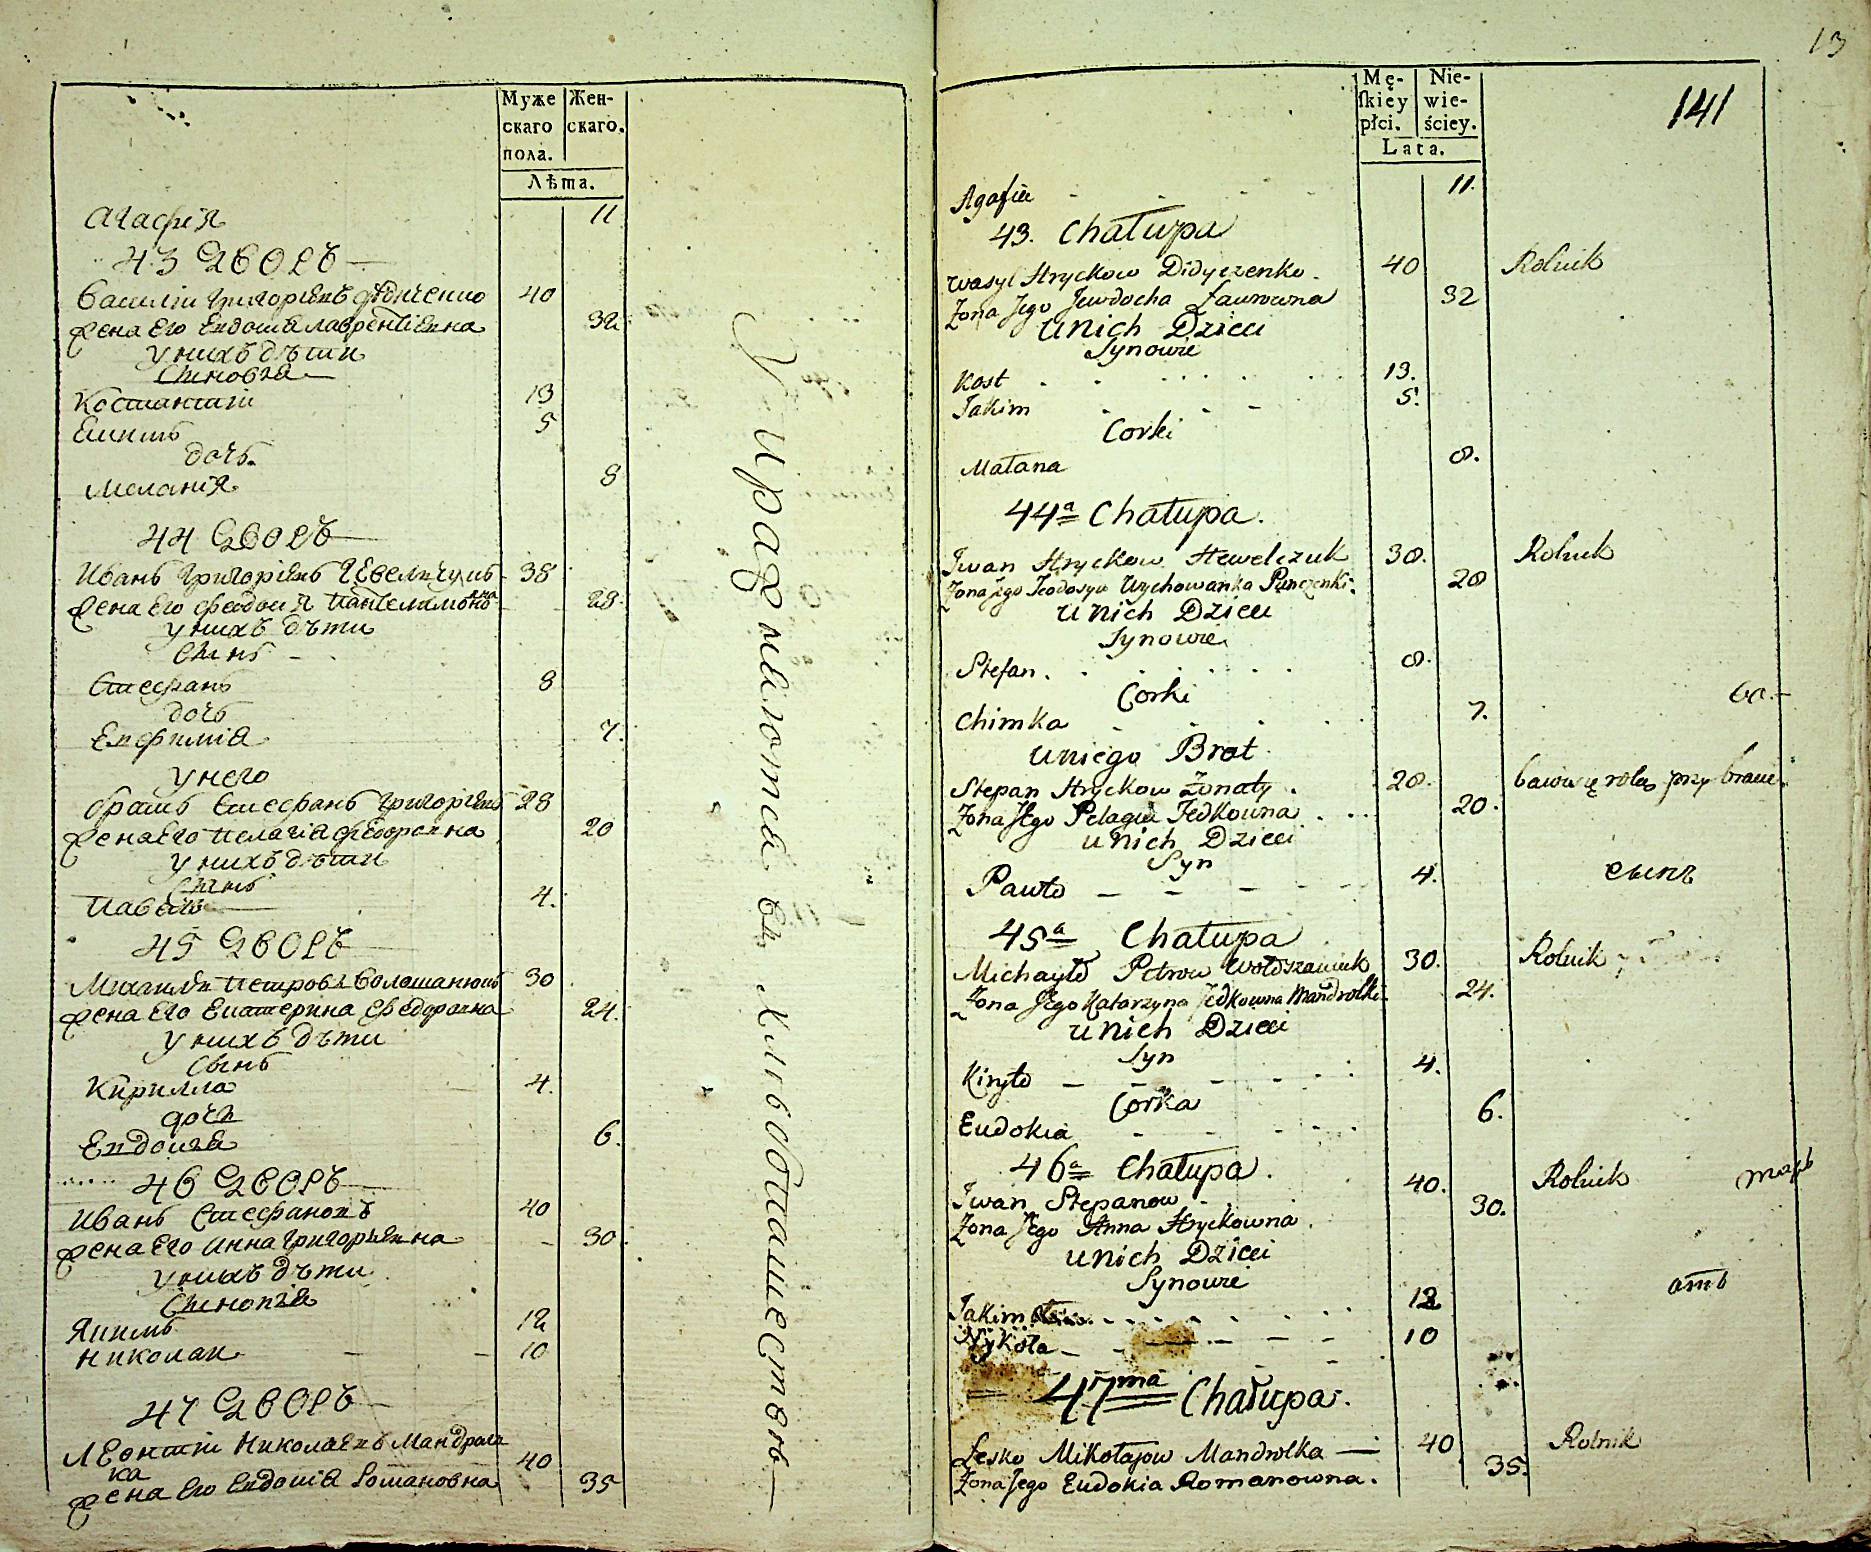 Муже
скаго
пола.
Жен-
скаго.
Лѣта.
Агафія 11
43 дворъ
Василій Григоріевъ 40
Жена его Евдокія Лаврентіевна 32
у нихъ дѣти
Сыновья
Костантій 13
Екимъ 5
дочь
Меланія 8
44 дворъ
Иванъ Григоріевъ Гевеличукъ 38
Жена его Феодосія Пантелимоновна 28
у нихъ дѣти
Сынъ
Стефанъ 8
дочь
Евфимія 7.
у него
братъ Стефанъ Григоріевъ 28
Жена его Пелагія Феодоровна 20
у нихъ дѣти
Сынъ
Павелъ 4.
45 дворъ
Михаилъ Петровъ Волошанюкъ 30
Жена его Екатерина Федоровна 24.
у нихъ дѣти
Сынъ
Кирилла 4.
дочь
Евдокія 6.
46 дворъ
Иванъ Стефановъ 40
Жена его Анна Григорьевна 30.
у нихъ дѣти
Сыновья
Якимъ 12
Николай 10
47 дворъ
Леонтій Николаевъ Мандрола
ка 40
Жена его Евдокія Романовна 35
Упражняются въ хлѣбопашествѣ
13
141
Mę-
skiey
płci.
Nie-
wie-
ściey.
Lata.
Agafia 11.
43. Chałupa
Wasyl Hryckow Didyczenko 40 Rolnik
Żona Jego Jewdocha Laurowna 32
u nich Dzieci
Synowie
Kost 13.
Jakim 5.
Corki
Małana 8.
44a Chałupa.
Iwan Hryckow Hewelczuk 38. Rolnik
Żona Jego Teodosya Wychowanka 28
u nich Dzieci
Synowie
Stefan. 8.
Corki
Chimka 7.
u niego Brat
Stepan Hryckow żonaty. 28. bawi się rolą przy bracie
Żona Jego Pelagia Fedkowna 20.
u nich Dzieci
Syn
Pawło 4. сынъ
45a Chałupa
Michayło Petrow Wołoszaniuk 30. Rolnik
Żona Jego Katarzyna Fedkowna Mandrołki 24.
u nich Dzieci
Syn
Kiryło 4.
Corka
Eudokia 6.
46a Chałupa.
Iwan Stepanow 40. Rolnik
Żona Jego Anna Hryckowna 30.
u nich Dzieci
Synowie
Jakim 12
Nykoła 10
47ma Chałupa.
Lesko Mikołajow Mandrolka 40 Rolnik
Żona Jego Eudokia Romanowna. 35.